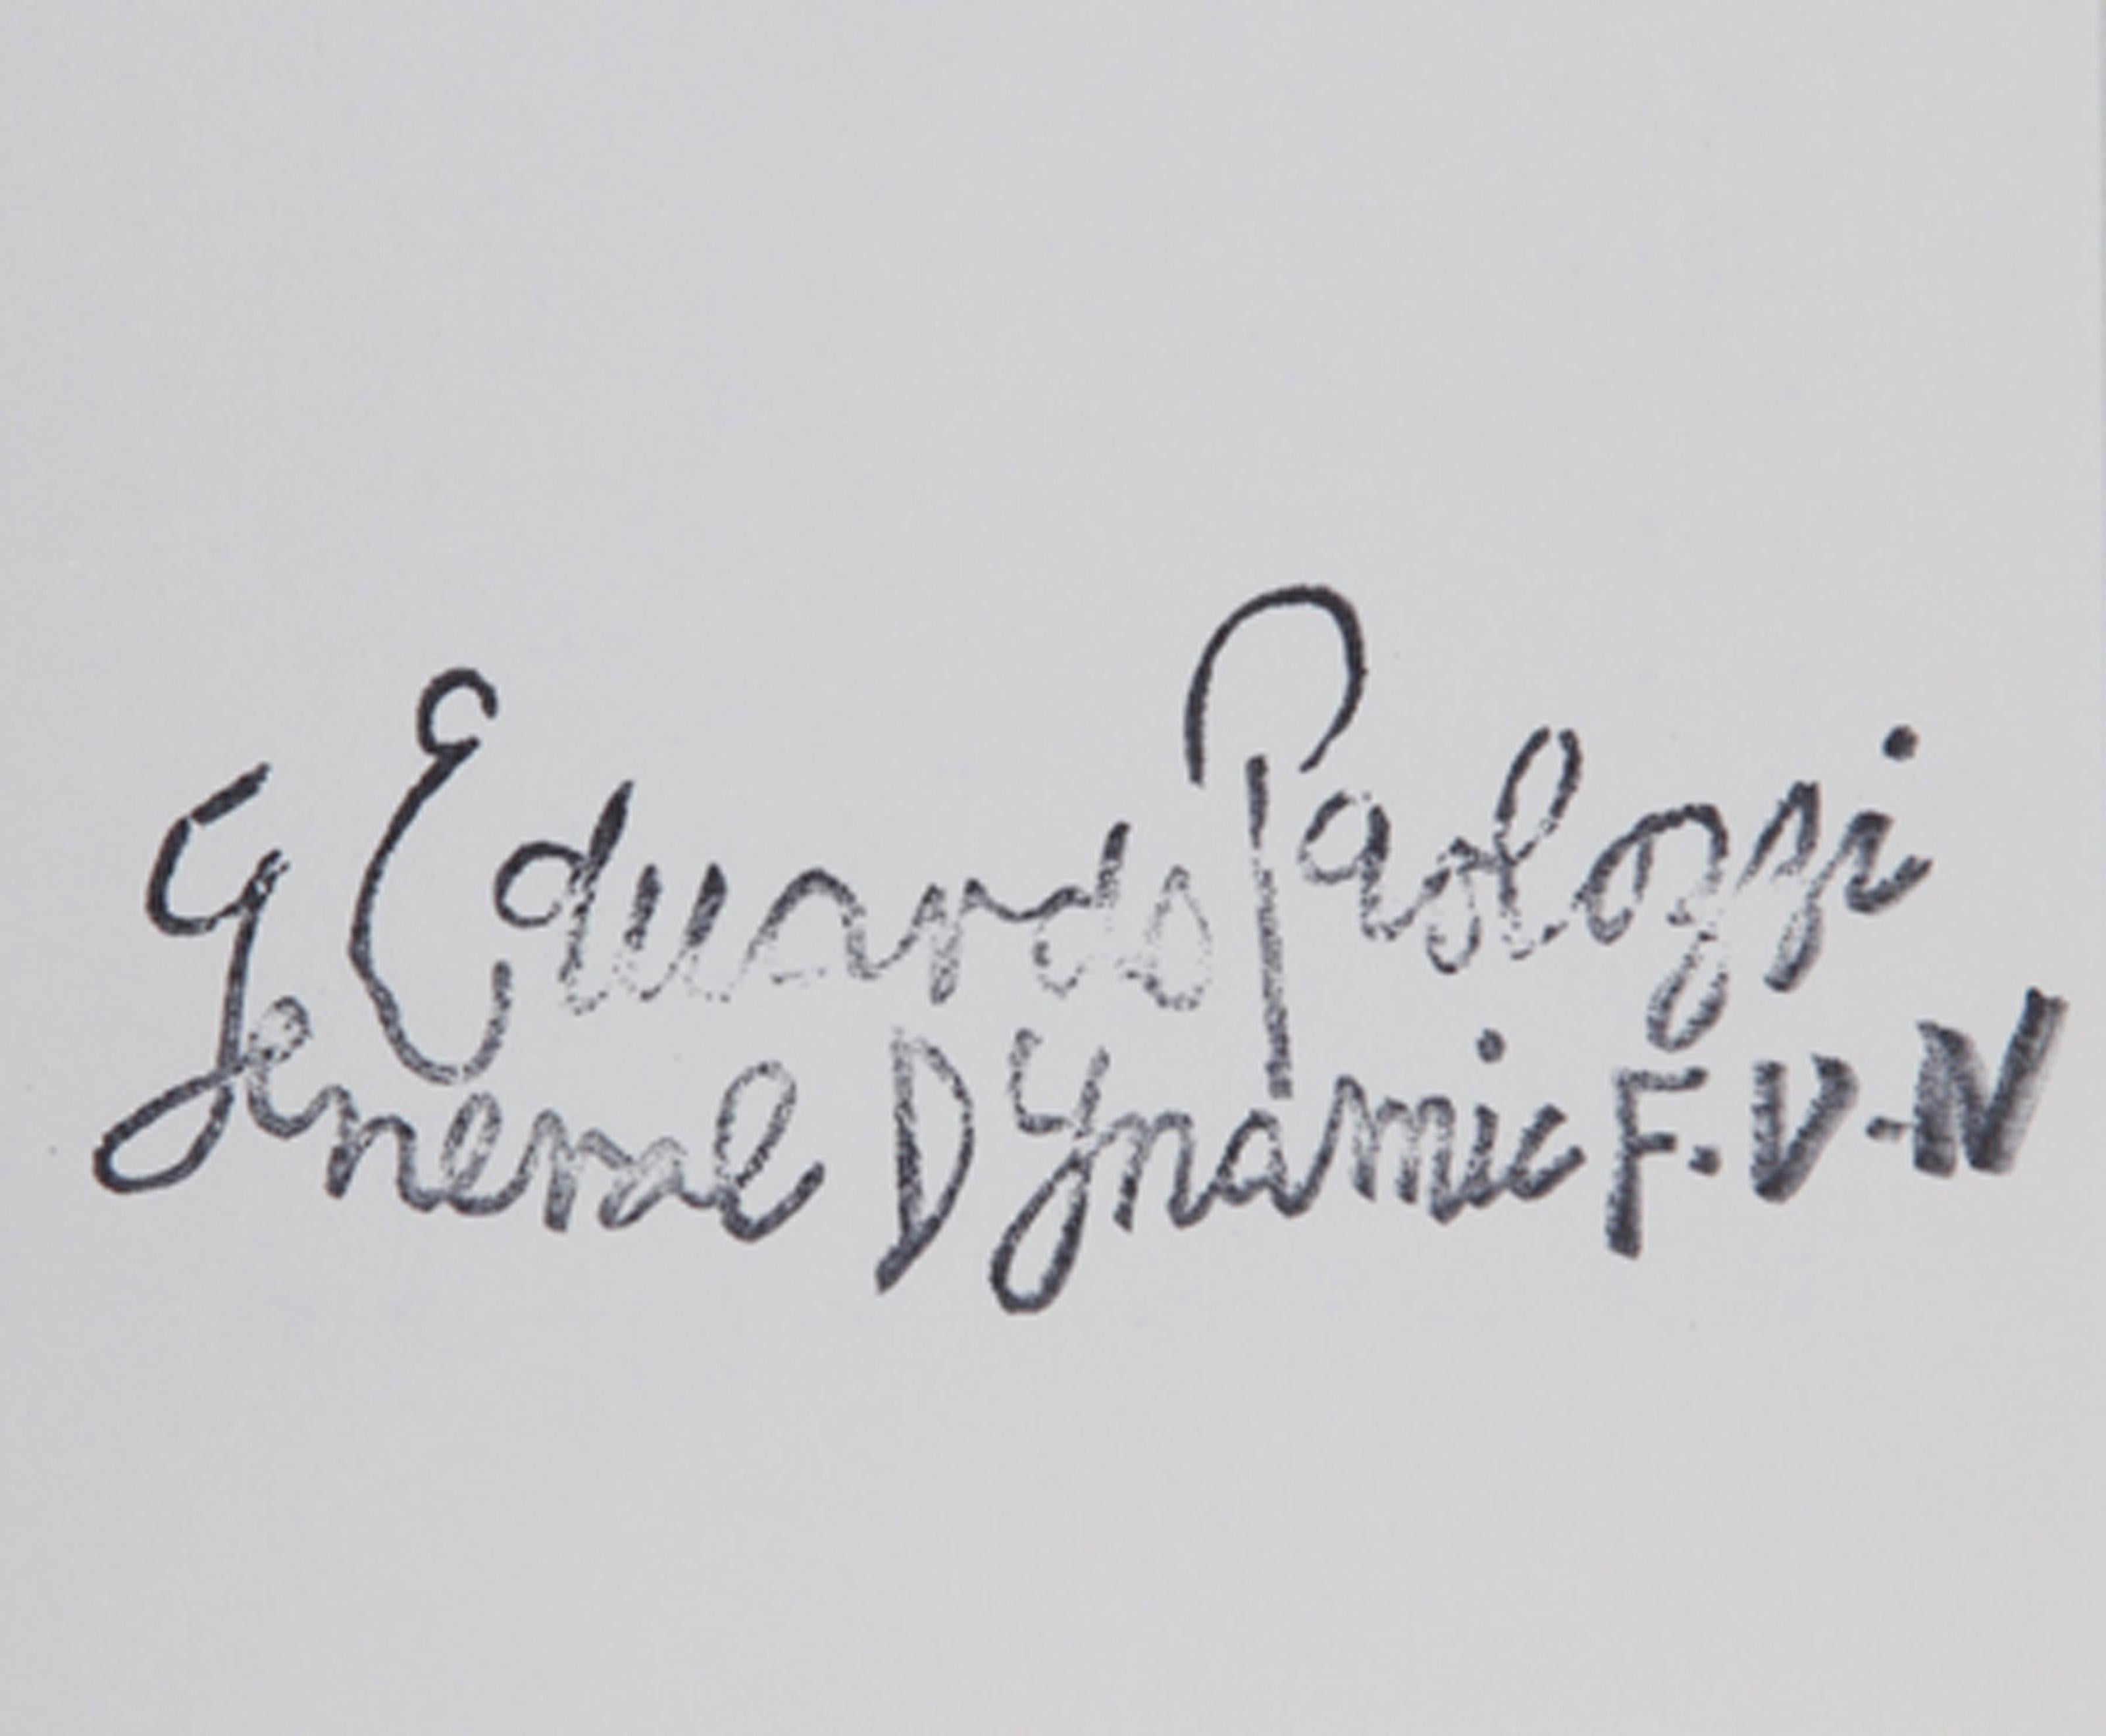 Eduardo Paolozzi
General Dynamic F.U.N